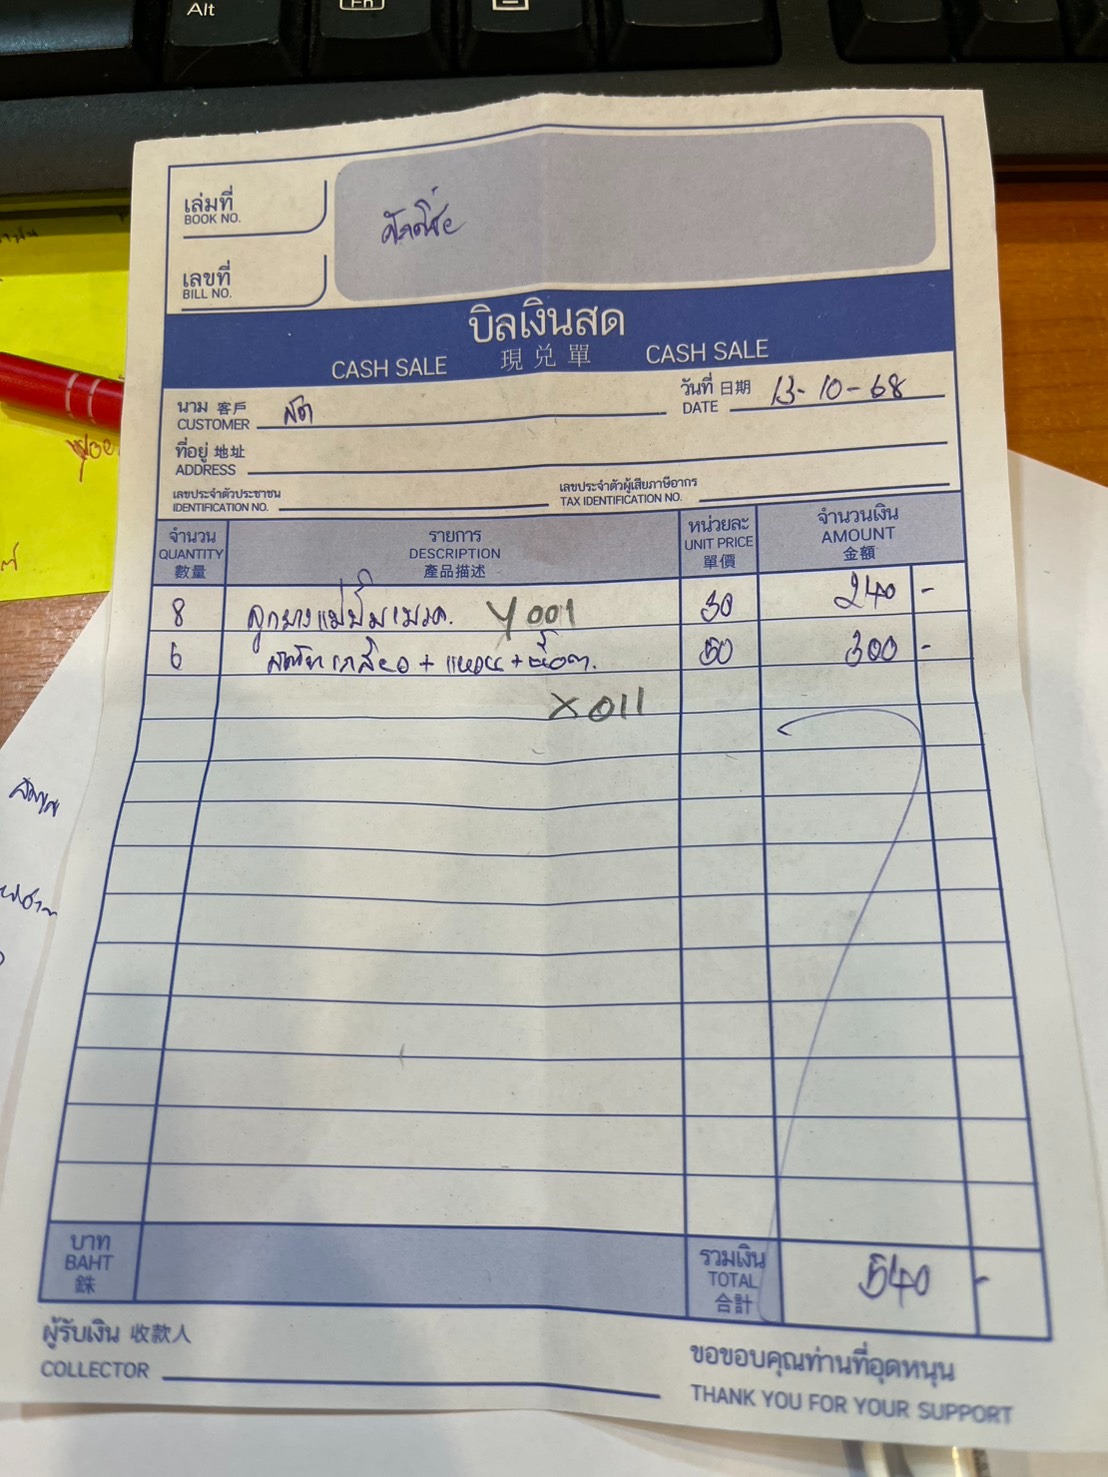 Alt
เล่มที่
BOOK NO.
เลขที่
BILL NO.
บิลเงินสด
CASH SALE 現兌單 CASH SALE
นาม 客戶
CUSTOMER สด
วันที่ 日期
DATE 13-10-68
ที่อยู่ 地址
ADDRESS
เลขประจำตัวประชาชน
IDENTIFICATION NO.
เลขประจำตัวผู้เสียภาษีอากร
TAX IDENTIFICATION NO.
จำนวน รายการ หน่วยละ จำนวนเงิน
QUANTITY DESCRIPTION UNIT PRICE AMOUNT
數量 產品描述 單價 金額
8 ลูกยางแม่ปั๊มเบรค. Y001 30 240 -
6 เกลียว + แหวน + น็อต. 50 300 -
X011
บาท
BAHT
銖
รวมเงิน
TOTAL
合計
540 -
ผู้รับเงิน 收款人
COLLECTOR
ขอขอบคุณท่านที่อุดหนุน
THANK YOU FOR YOUR SUPPORT